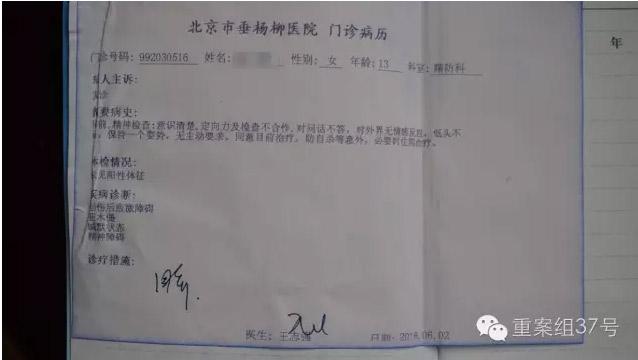 北京市垂杨柳医院 门诊病历
门诊号码: 992030516 姓名: 性别: 女 年龄: 13 科室: 精防科
病人主诉:
简要病史:
目前,精神检查:意识清楚,定向力及检查不合作,对问话不答,对外界无情感反应,低头不
保持一个姿势,无主动要求,同意目前治疗,防自杀等意外,必要时住院治疗。
体检情况:
未见阳性体征
疾病诊断:
创伤后应激障碍
亚木僵
缄默状态
精神障碍
诊疗措施:
医生: 王志强 日期: 2016.06.02
年
重案组37号